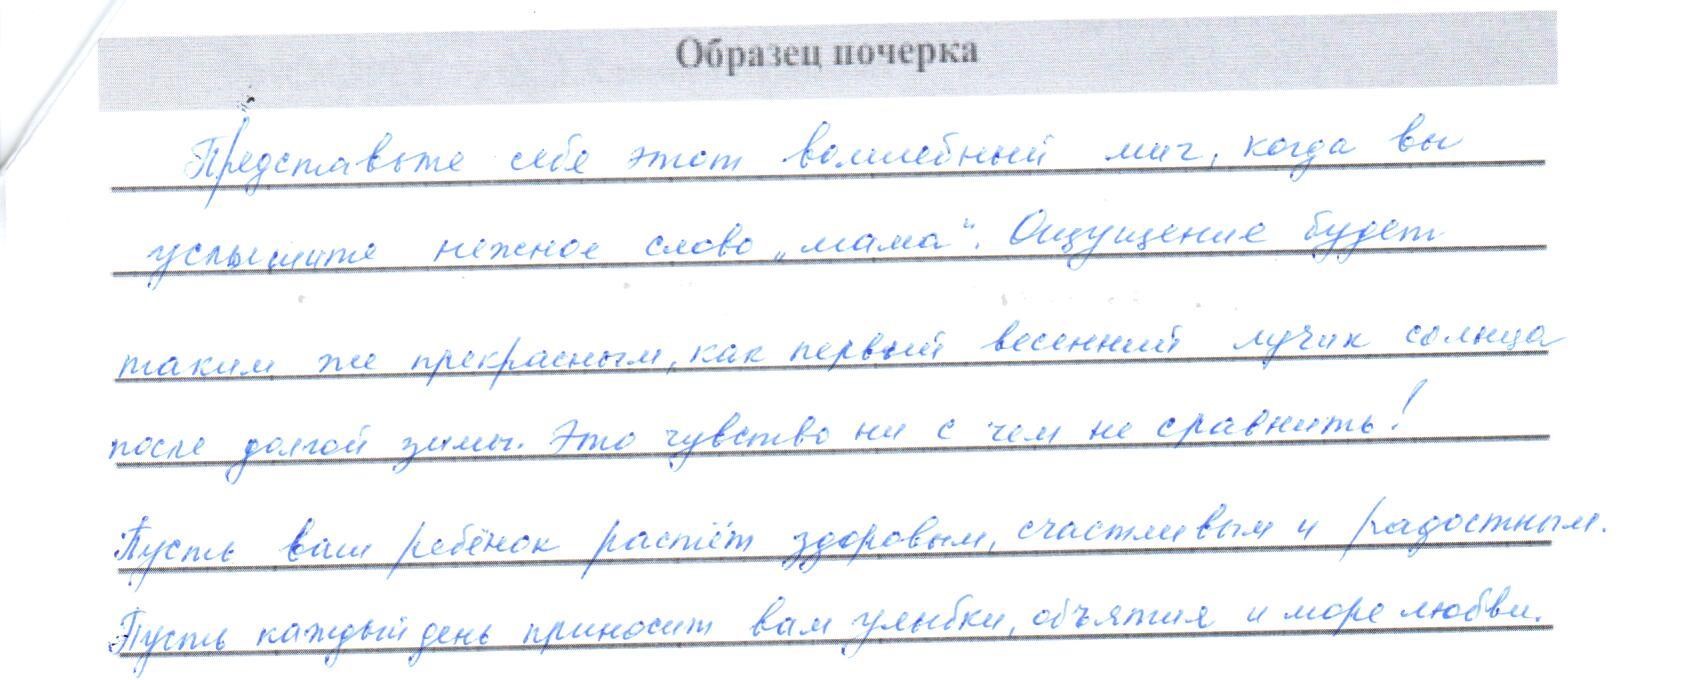 Образец почерка
Представьте себе этот волшебный миг, когда вы
услышите нежное слово „мама“. Ощущение будет
таким же прекрасным, как первый весенний лучик солнца
после долгой зимы. Это чувство ни с чем не сравнить!
Пусть ваш ребёнок растёт здоровым, счастливым и радостным.
Пусть каждый день приносит вам улыбки, объятия и море любви.